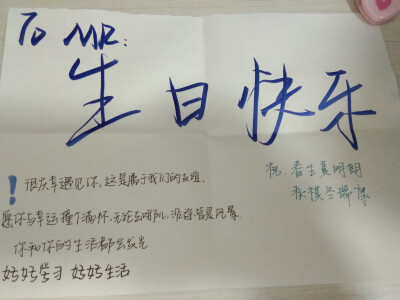 To MR:
生日快乐
祝 春生夏明朗
秋祺冬瑞禄
！很庆幸遇见你,这是属于我们的友谊.
愿你与幸运撞个满怀,无论去哪儿,沿途皆是风景
你和你的生活都会发光
好好学习 好好生活